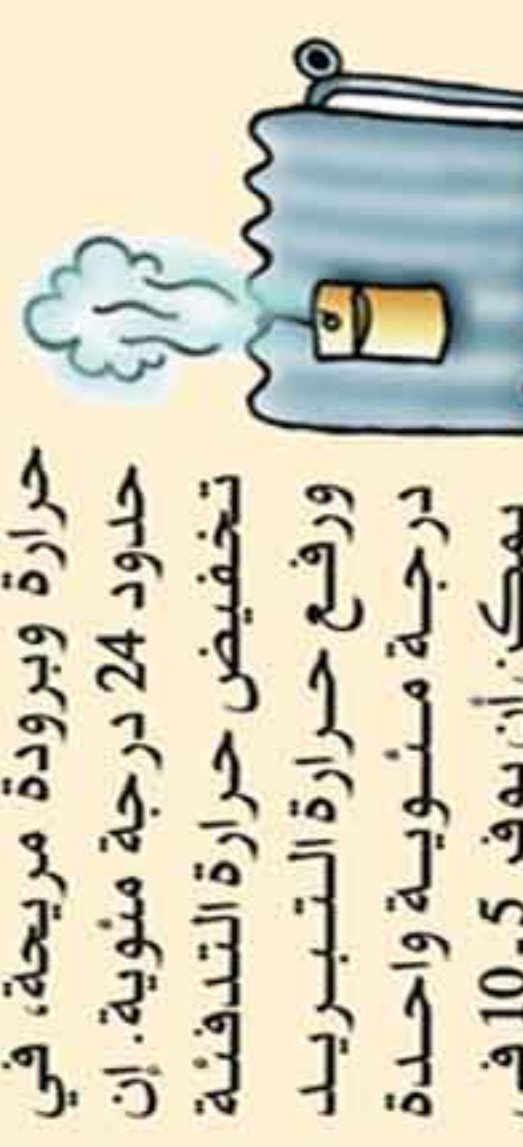 حرارة وبرودة مريحة، في
حدود 24 درجة مئوية. إن
تخفيض حرارة التدفئة
ورفع حرارة التبريد
درجة مئوية واحدة
يمكن أن يوفر 5-10 في